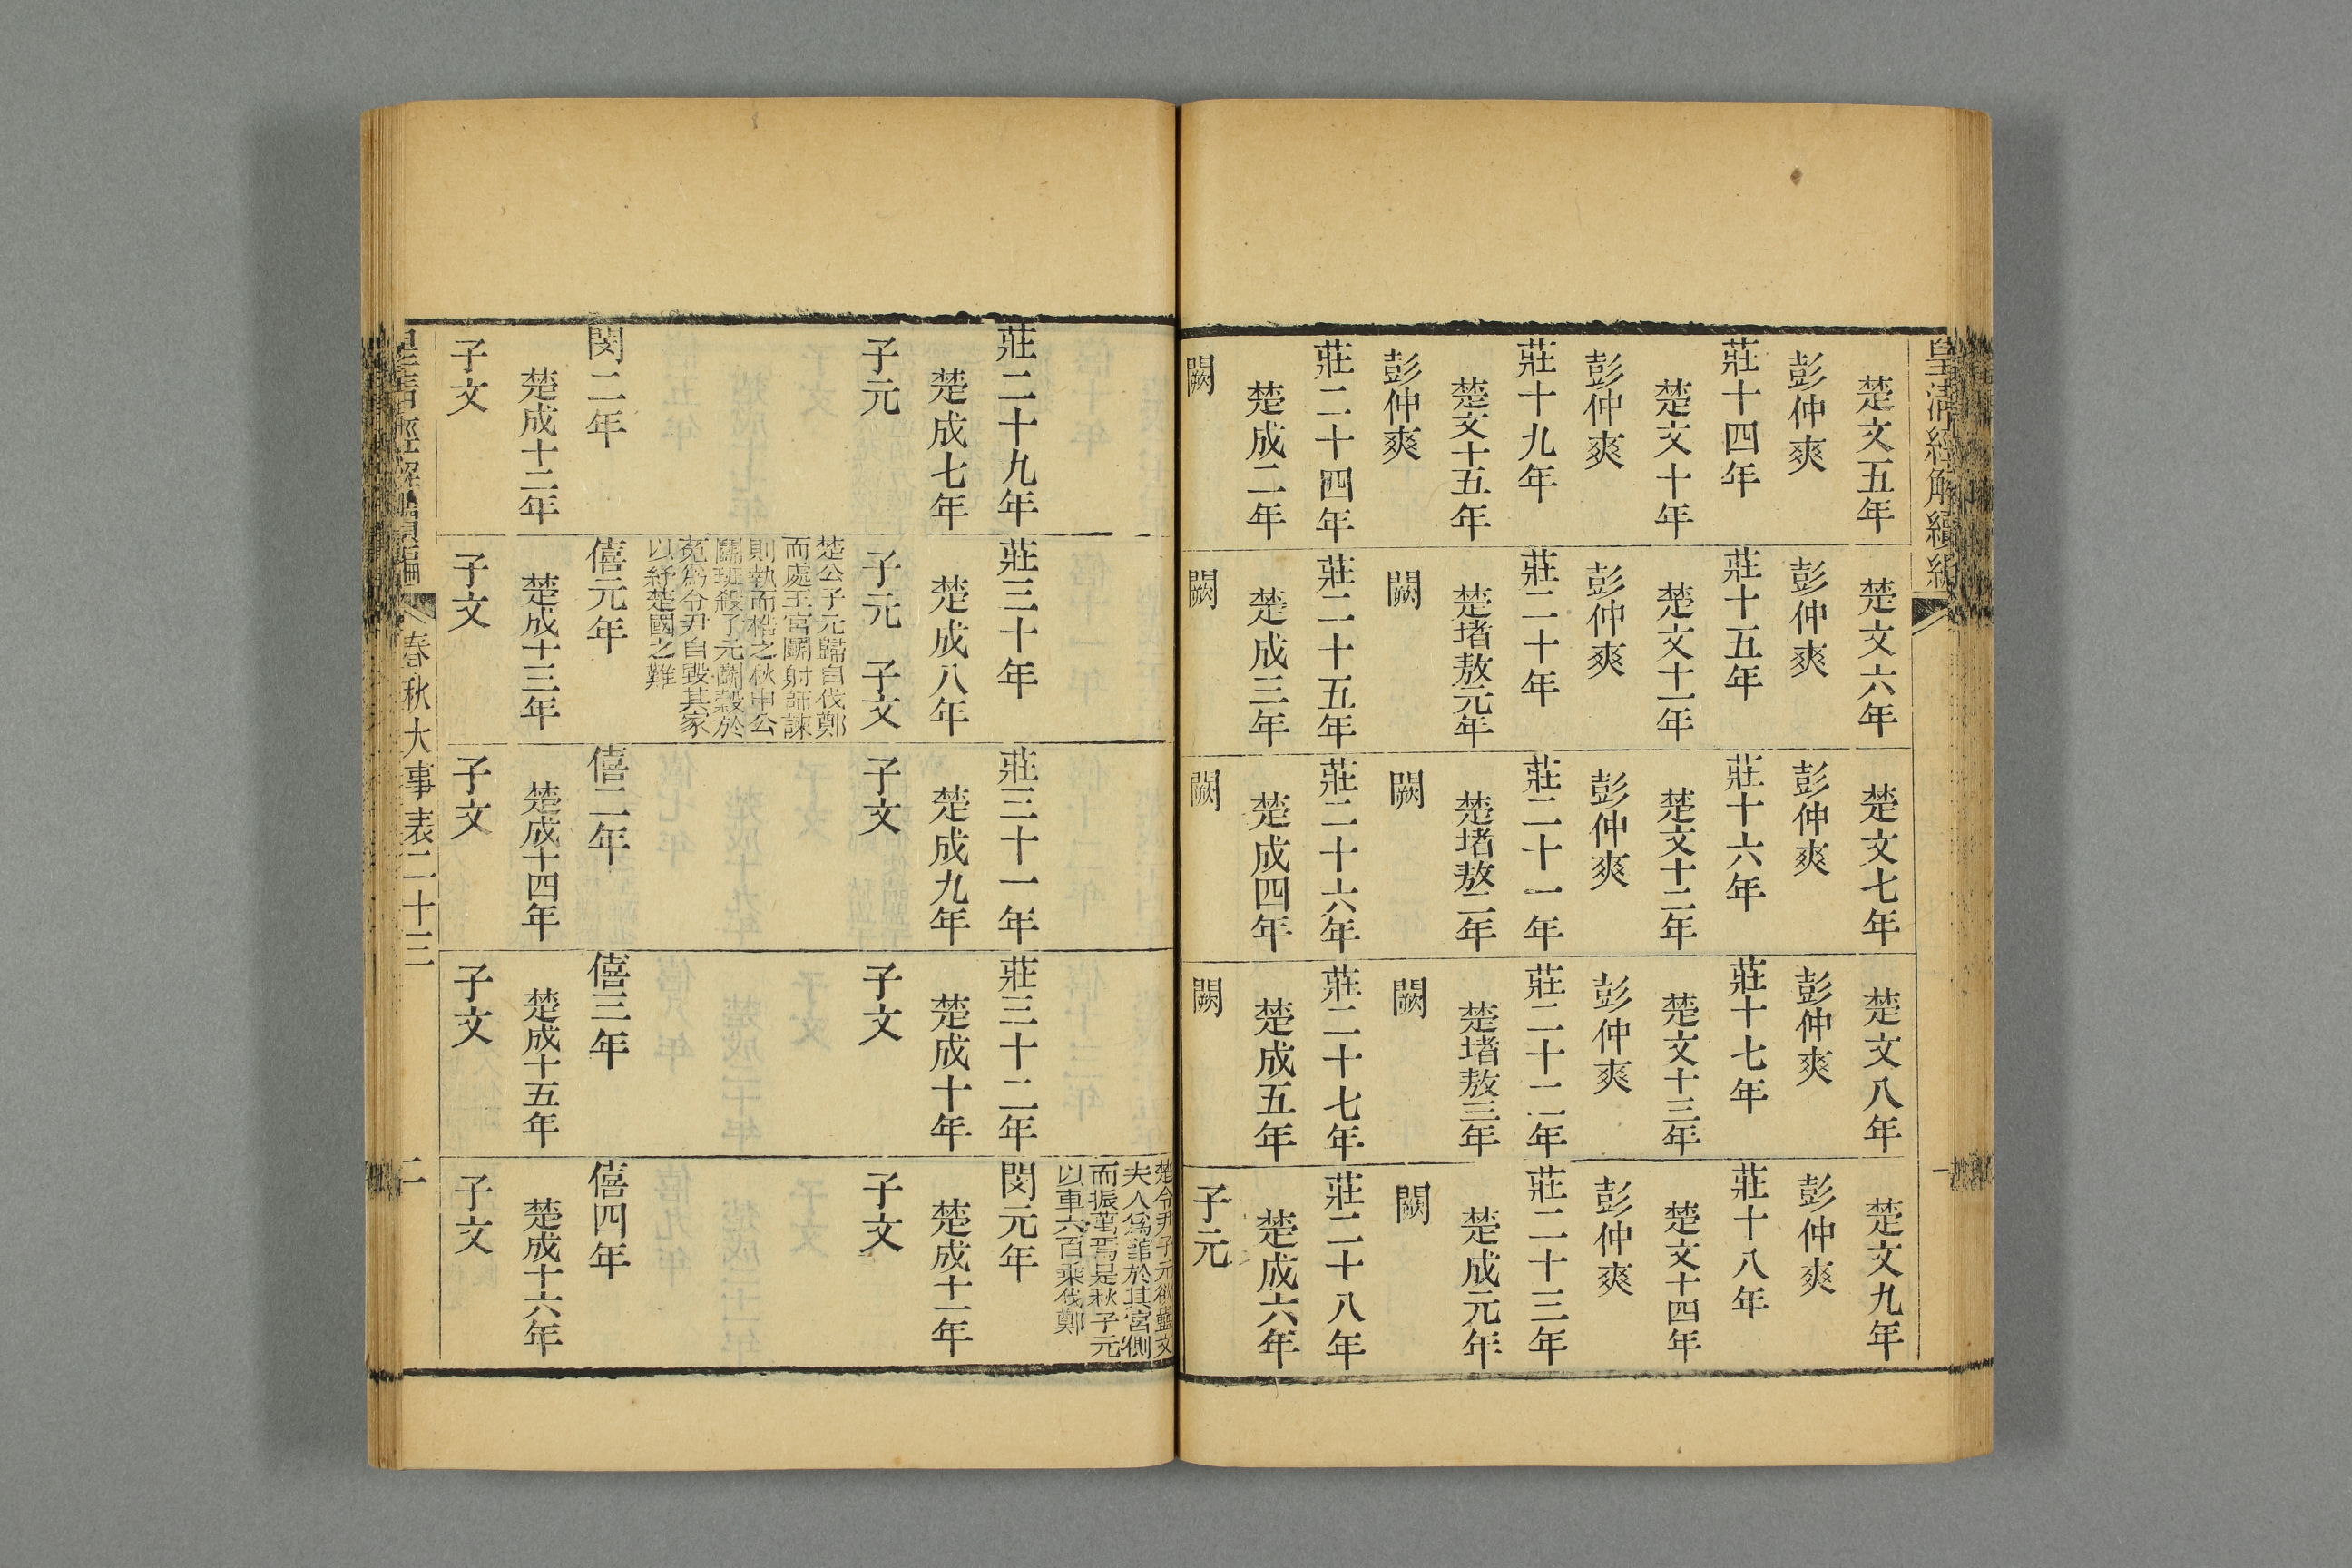 皇清經解續編
楚文五年 楚文六年 楚文七年 楚文八年 楚文九年
彭仲爽 彭仲爽 彭仲爽 彭仲爽 彭仲爽
莊十四年 莊十五年 莊十六年 莊十七年 莊十八年
楚文十年 楚文十一年 楚文十二年 楚文十三年 楚文十四年
彭仲爽 彭仲爽 彭仲爽 彭仲爽 彭仲爽
莊十九年 莊二十年 莊二十一年 莊二十二年 莊二十三年
楚文十五年 楚堵敖元年 楚堵敖二年 楚堵敖三年 楚成元年
彭仲爽 闕 闕 闕 闕
莊二十四年 莊二十五年 莊二十六年 莊二十七年 莊二十八年
楚成二年 楚成三年 楚成四年 楚成五年 楚成六年
闕 闕 闕 闕 子元
楚令尹子元欲蠱文
夫人爲館於其宮側
而振萬焉是秋子元
以車六百乘伐鄭
莊二十九年 莊三十年 莊三十一年 莊三十二年 閔元年
楚成七年 楚成八年 楚成九年 楚成十年 楚成十一年
子元 子元 子文 子文 子文 子文
楚公子元歸自伐鄭
而處王宮鬭射師諫
則執而梏之秋申公
鬭班殺子元鬭穀於
菟爲令尹自毀其家
以紓楚國之難
閔二年 僖元年 僖二年 僖三年 僖四年
楚成十二年 楚成十三年 楚成十四年 楚成十五年 楚成十六年
子文 子文 子文 子文 子文
皇清經解續編 春秋大事表二十三 二